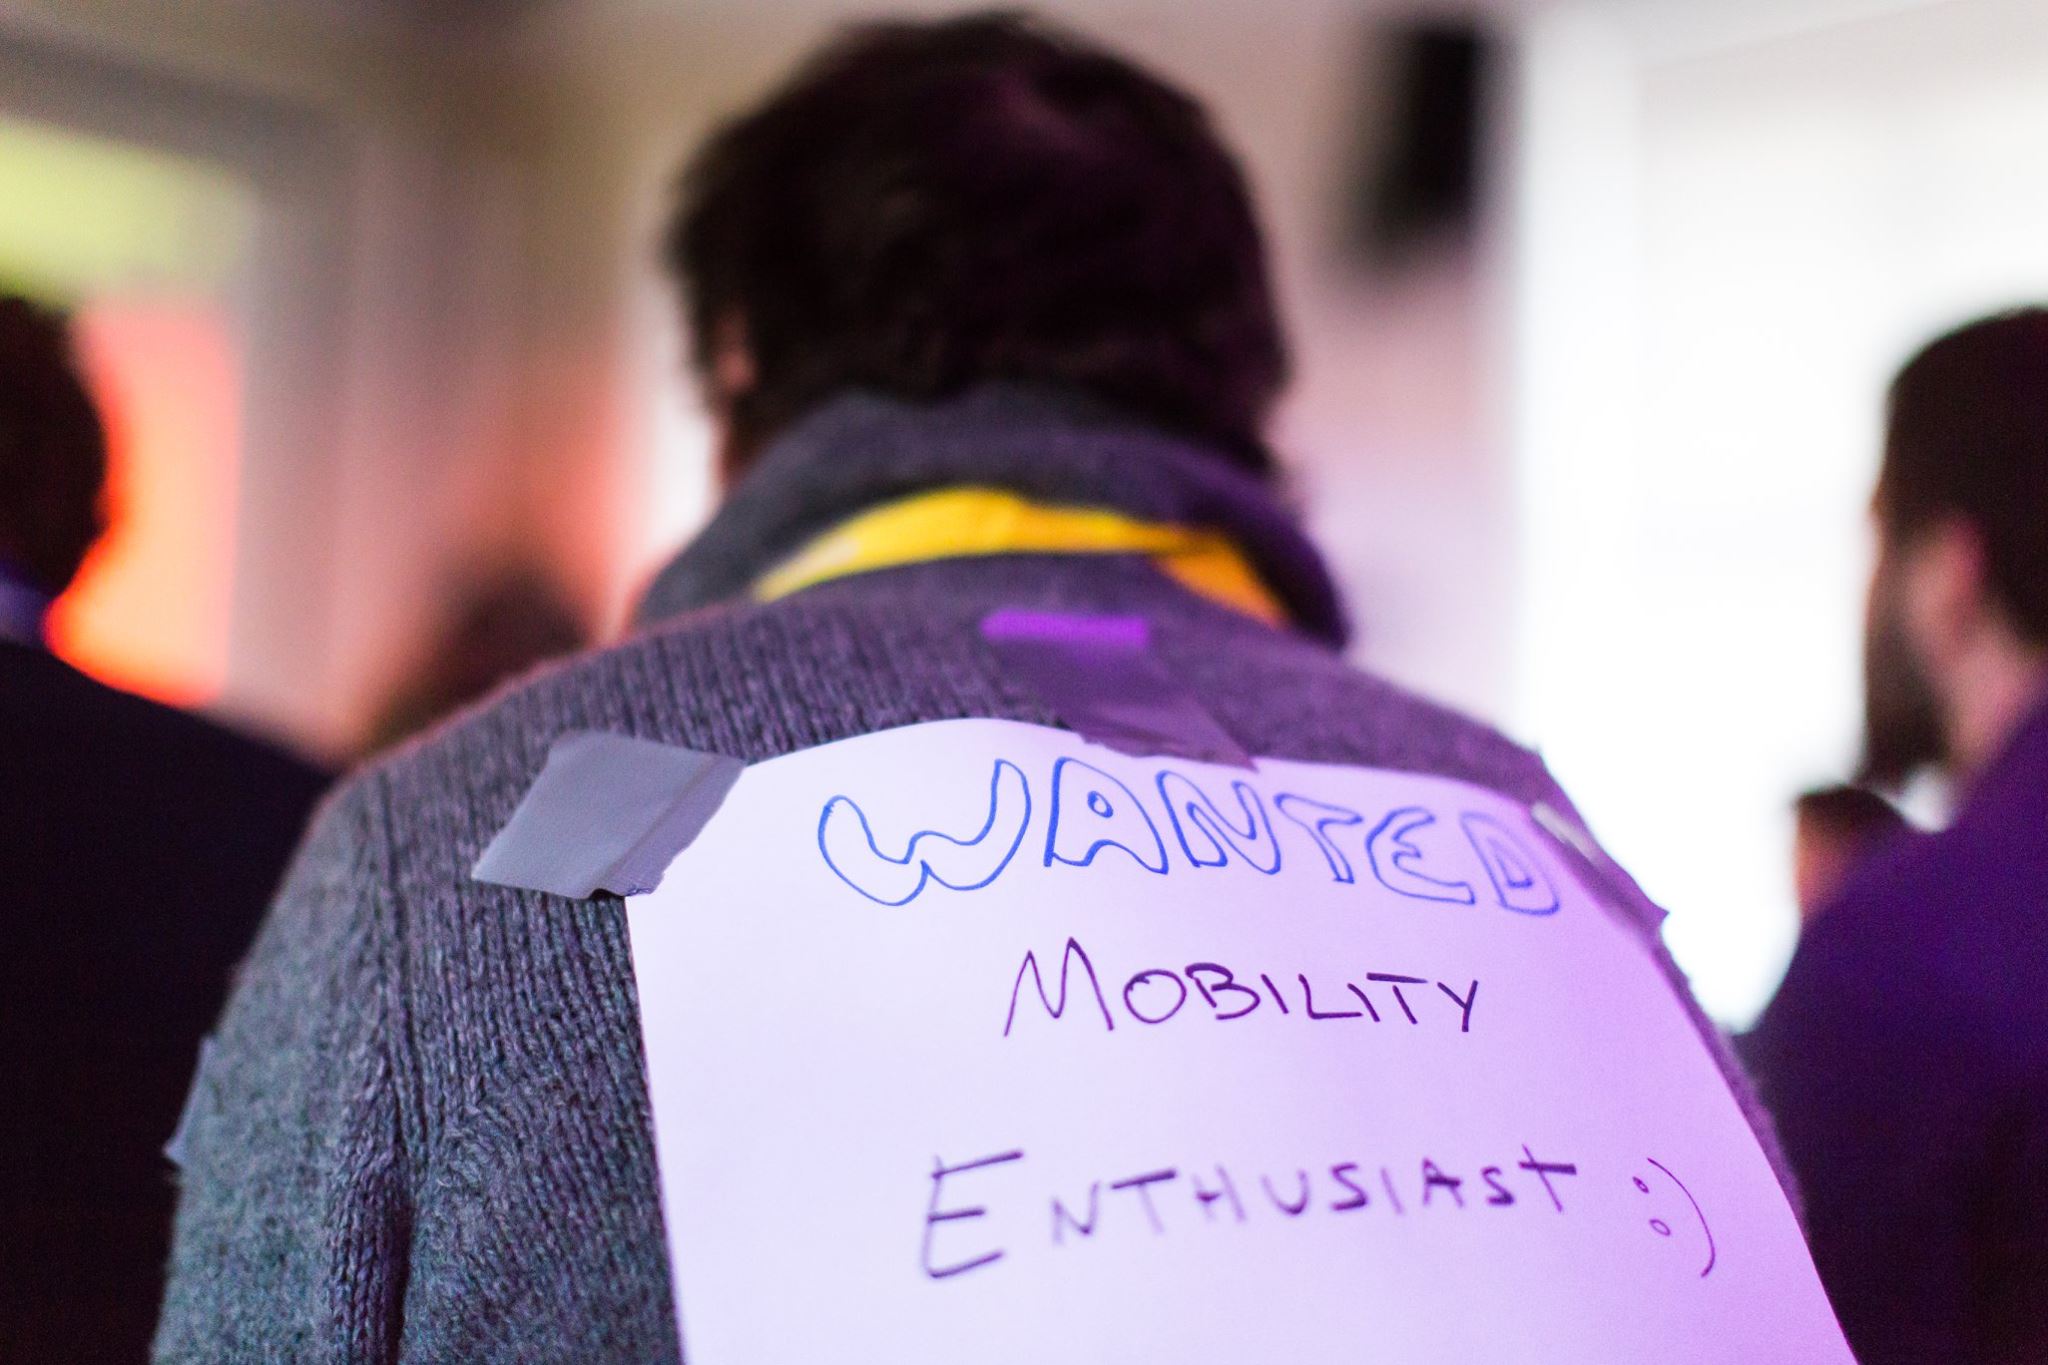 WANTED
MOBILITY
ENTHUSIAST :)